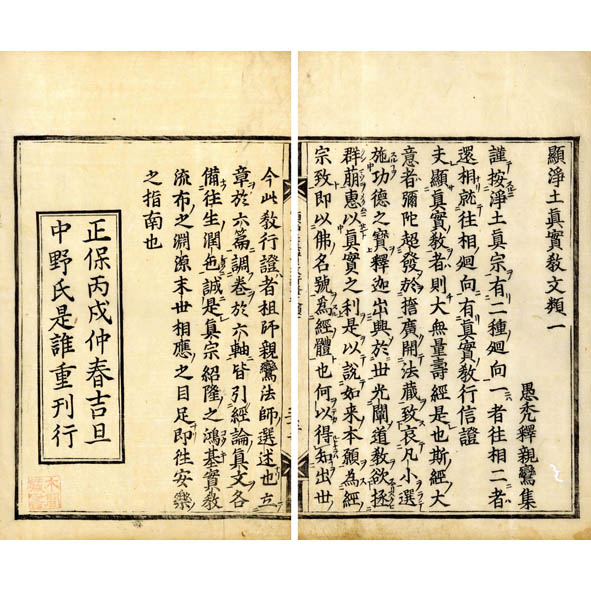 顯淨土眞實教文類一
愚禿釋親鸞集
謹按淨土眞宗有二種廻向一者往相二者
還相就往相廻向有眞實教行信證
夫顯眞實教者則大無量壽經是也斯經大
意者彌陀超發於誓廣開法藏致哀凡小選
施功德之寶釋迦出興於世光闡道教欲拯
群萠惠以眞實之利是以說如來本願爲經
宗致即以佛名號爲經體也何以得知出世
今此教行證者祖師親鸞法師選述也立
章於六篇調卷於六軸皆引經論眞文各
備往生潤色誠是眞宗紹隆之鴻基實教
流布之淵源末世相應之目足即往安樂
之指南也
正保丙戌仲春吉旦
中野氏是誰重刊行